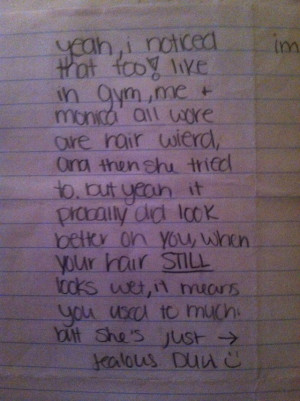 yeah, i noticed
that too! like
in gym, me +
monica all wore
are hair wierd,
and then she tried
to. but yeah it
probally did look
better on you, when
your hair STILL
looks wet, it means
you used to much.
but She's just →
jealous Duu
im